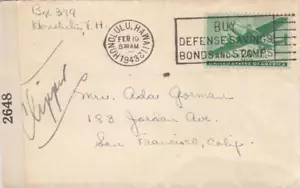 Box 379
Honolulu, T.H.
HONOLULU, HAWAII
FEB 10
8:30 AM
1943
BUY
DEFENSE SAVINGS
BONDS AND STAMPS
UNITED STATES OF AMERICA
2648
Clipper
Mrs. Ada Gorman
183 Jordan Ave.
San Francisco, Calif.